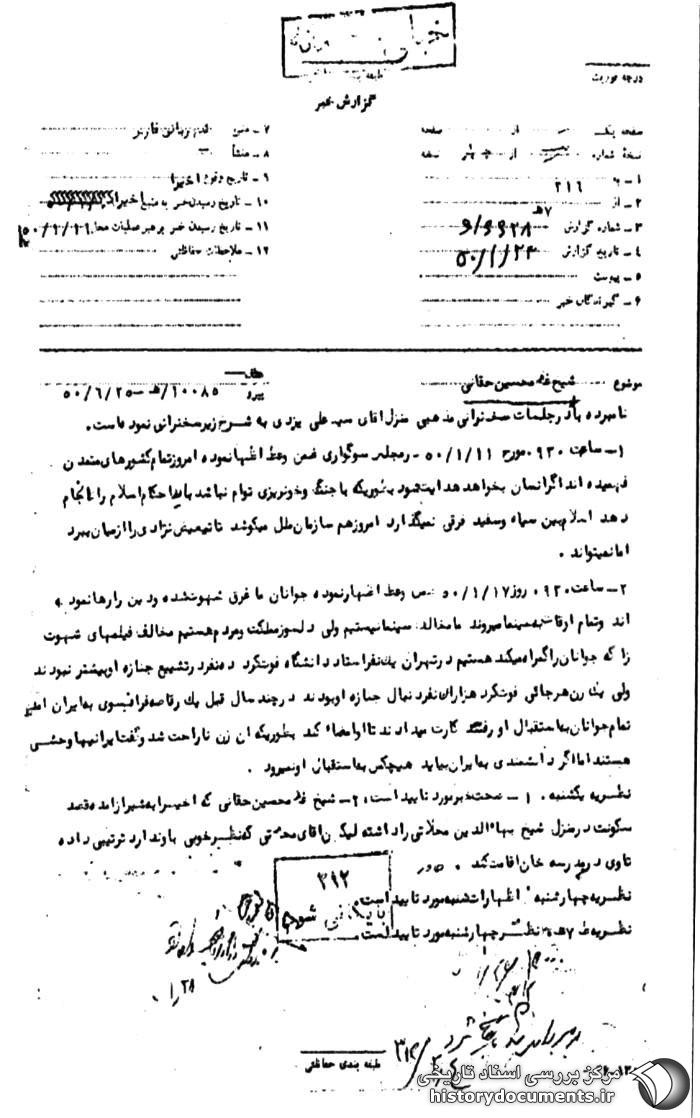 طبقه بندی
درجه فوریت
گزارش خبر
صفحه یک از صفحه
نسخه شماره از چهار نسخه
۱ - به ۳۱۶
۲ - از ۷هـ
۳ - شماره گزارش
۴ - تاریخ گزارش ۵۰/۱/۲۳
۵ - پیوست
۶ - گیرندگان خبر
۷ - منبع
۸ - منشأ
۹ - تاریخ وقوع اخیرا
۱۰ - تاریخ رسیدن خبر به منبع اخیرا
۱۱ - تاریخ رسیدن خبر برهبر عملیات
۱۲ - ملاحظات حفاظتی
موضوع شیخ غلامحسین حقانی
پیرو ۱۰۰۸۵/هـ - ۵۰/۶/۲۵
نامبرده بالا در جلسات سخنرانی مذهبی منزل آقای سید علی یزدی به شرح زیر سخنرانی نموده است.
۱- ساعت ۰۹۳۰ مورخ ۵۰/۱/۱۱ در مجلس سوگواری ضمن وعظ اظهار نموده امروز تمام کشورهای متمدن
فهمیده اند اگر انسان بخواهد هدایت شود بطوریکه با جنگ و خونریزی توام نباشد باید احکام اسلام را انجام
دهد اسلام بین سیاه و سفید فرقی نمیگذارد امروز هم سازمان ملل میکوشد تا تبعیض نژادی را از میان ببرد
اما نمیتواند .
۲- ساعت ۰۹۳۰ روز ۵۰/۱/۱۷ ضمن وعظ اظهار نموده جوانان ما غرق شهوت شده و دین را رها نموده
اند و تمام اوقات به سینما میروند ما مخالف سینما نیستیم ولی دلسوز مملکت و مردم هستیم مخالف فیلمهای شهوت
زا که جوانان را گمراه میکند هستیم در تهران یک نفر استاد دانشگاه فوت کرد ده نفر در تشییع جنازه او بیشتر نبودند
ولی یک زن هرجائی فوت کرد هزاران نفر دنبال جنازه او بودند در چند سال قبل یک رقاصه فرانسوی به ایران آمد
تمام جوانان به استقبال او رفتند کارت میدادند تا او امضاء کند بطوریکه آن زن ناراحت شد و گفت ایرانیها وحشی
هستند اما اگر دانشمندی به ایران بیاید هیچکس به استقبال او نمیرود .
نظریه یکشنبه . ۱- صحت خبر مورد تایید است . ۲- شیخ غلامحسین حقانی که اخیرا به شیراز آمده قصد
سکونت در منزل شیخ بهاءالدین محلاتی را داشته لیکن آقای محلاتی که نظر خوبی باو ندارد ترتیبی داده
تا وی در مدرسه خان اقامت کند .
نظریه چهارشنبه . اظهارات شنبه مورد تایید است .
نظریه ۷هـ . نظر چهارشنبه مورد تایید است .
۳۱۲
بایگانی شود
طبقه بندی حفاظتی
مرکز بررسی اسناد تاریخی
historydocuments.ir